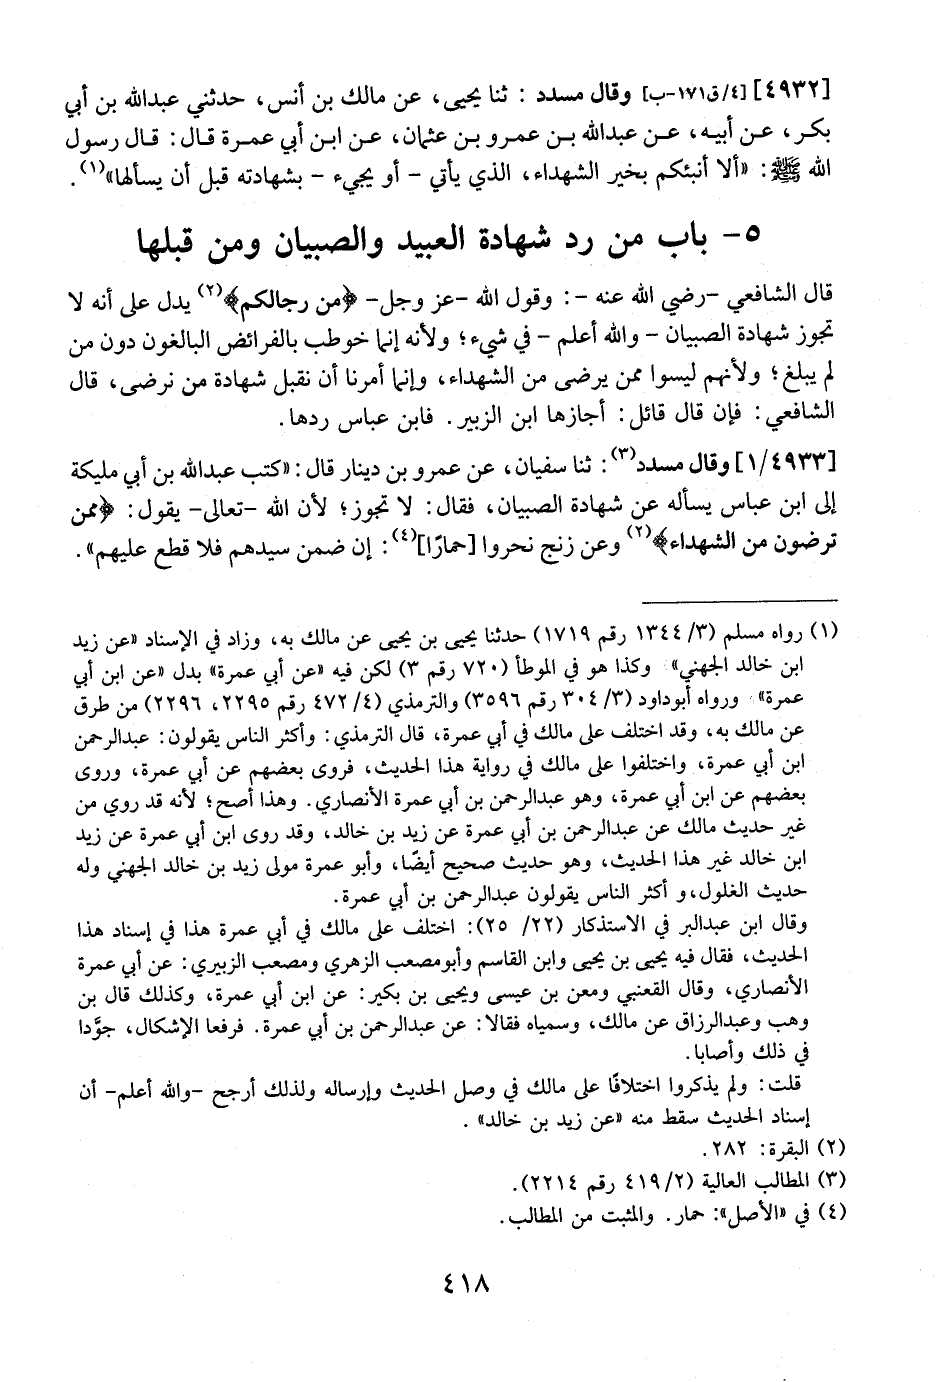 [٤٩٣٢] [٤/ق١٧١-ب] وقال مسدد : ثنا يحيى، عن مالك بن أنس، حدثني عبدالله بن أبي
بكر، عن أبيه، عن عبدالله بن عمرو بن عثمان، عن ابن أبي عمرة قال: قال رسول
الله ﷺ: «ألا أنبئكم بخير الشهداء، الذي يأتي - أو يجيء - بشهادته قبل أن يسألها»(١).
٥- باب من رد شهادة العبيد والصبيان ومن قبلها
قال الشافعي -رضي الله عنه -: وقول الله -عز وجل- ﴿من رجالكم﴾(٢) يدل على أنه لا
تجوز شهادة الصبيان - والله أعلم - في شيء؛ ولأنه إنما خوطب بالفرائض البالغون دون من
لم يبلغ؛ ولأنهم ليسوا ممن يرضى من الشهداء، وإنما أمرنا أن نقبل شهادة من نرضى، قال
الشافعي: فإن قال قائل: أجازها ابن الزبير. فابن عباس ردها.
[١/٤٩٣٣] وقال مسدد(٣): ثنا سفيان، عن عمرو بن دينار قال: «كتب عبدالله بن أبي مليكة
إلى ابن عباس يسأله عن شهادة الصبيان، فقال: لا تجوز؛ لأن الله -تعالى- يقول: ﴿ممن
ترضون من الشهداء﴾(٢) وعن زنج نحروا [حمارًا](٤): إن ضمن سيدهم فلا قطع عليهم».
(١) رواه مسلم (٣/ ١٣٤٤ رقم ١٧١٩) حدثنا يحيى بن يحيى عن مالك به، وزاد في الإسناد «عن زيد
ابن خالد الجهني» وكذا هو في الموطأ (٧٢٠ رقم ٣) لكن فيه «عن أبي عمرة» بدل «عن ابن أبي
عمرة» ورواه أبوداود (٣/ ٣٠٤ رقم ٣٥٩٦) والترمذي (٤/ ٤٧٢ رقم ٢٢٩٥، ٢٢٩٦) من طرق
عن مالك به، وقد اختلف على مالك في أبي عمرة، قال الترمذي: وأكثر الناس يقولون: عبدالرحمن
ابن أبي عمرة، واختلفوا على مالك في رواية هذا الحديث، فروى بعضهم عن أبي عمرة، وروى
بعضهم عن ابن أبي عمرة، وهو عبدالرحمن بن أبي عمرة الأنصاري. وهذا أصح؛ لأنه قد روي من
غير حديث مالك عن عبدالرحمن بن أبي عمرة عن زيد بن خالد، وقد روى ابن أبي عمرة عن زيد
ابن خالد غير هذا الحديث، وهو حديث صحيح أيضًا، وأبو عمرة مولى زيد بن خالد الجهني وله
حديث الغلول،و أكثر الناس يقولون عبدالرحمن بن أبي عمرة.
وقال ابن عبدالبر في الاستذكار (٢٢/ ٢٥): اختلف على مالك في أبي عمرة هذا في إسناد هذا
الحديث، فقال فيه يحيى بن يحيى وابن القاسم وأبومصعب الزهري ومصعب الزبيري: عن أبي عمرة
الأنصاري، وقال القعنبي ومعن بن عيسى ويحيى بن بكير: عن ابن أبي عمرة، وكذلك قال بن
وهب وعبدالرزاق عن مالك، وسمياه فقالا: عن عبدالرحمن بن أبي عمرة. فرفعا الإشكال، جوَّدا
في ذلك وأصابا.
قلت: ولم يذكروا اختلافًا على مالك في وصل الحديث وإرساله ولذلك أرجح -والله أعلم- أن
إسناد الحديث سقط منه «عن زيد بن خالد» .
(٢) البقرة: ٢٨٢.
(٣) المطالب العالية (٤١٩/٢ رقم ٢٢١٤).
(٤) في «الأصل»: حمار. والمثبت من المطالب.
٤١٨